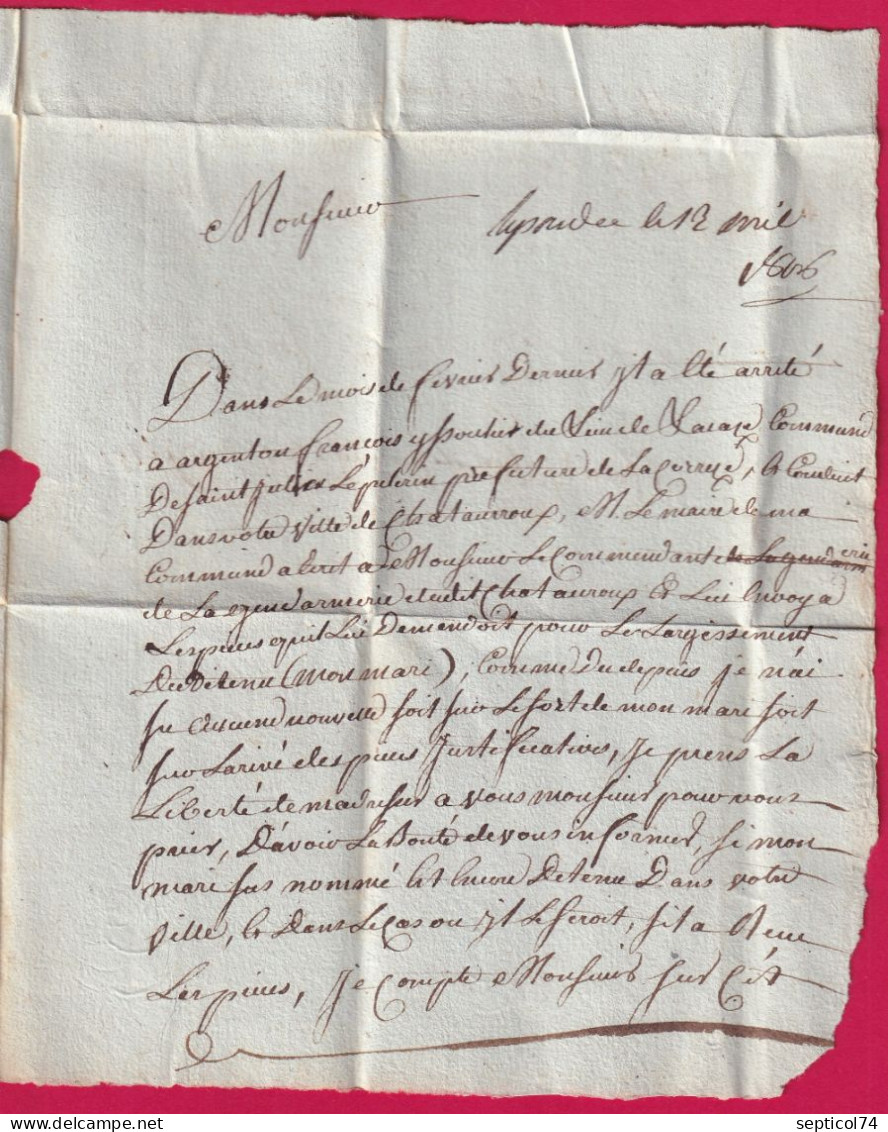 Monsieur
répondu le 12 avril
1806
Dans Le mois de fevrier Dernier yl a été arrité
a argenton françois yssoulier du Lieu de Lacaze Commune
De saint julien Lépelerin préfecture de La Correze, et Conduit
Dans votre ville de Chataurroux, M. Le maire de ma
Commune a Ecrit a Monsieur Le Commendant de La gendarmerie
de La gendarmerie dudit Chatauroux Et Lui Envoya
Les pieces qu'il Lui Demendoit pour Le Largissement
Du Detenu (mon mari), Comme du depuis je n'ai
su aucune nouvelle soit sur Le sort de mon mari soit
sur Larivé des pieces justificatives, je prens La
Liberté de madresser a vous monsieur pour vous
prier, D'avoir La Bonté de vous informer, si mon
mari sus nommé Est Encore Detenu Dans votre
ville, et Dans Le Cas ou yl Le seroit, sil a Reçu
Les pieces, je Compte Monsieur sur Cet
delcampe.net
septicol74